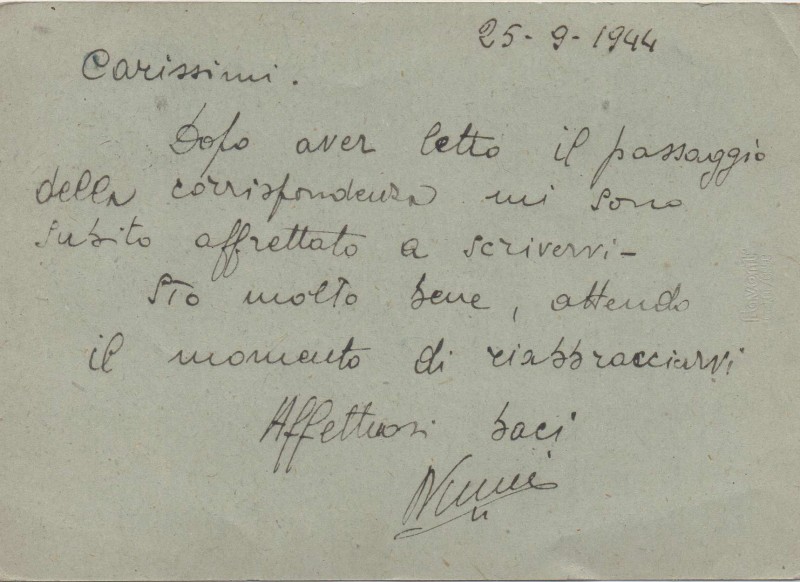 25-9-1944
Carissimi.
Dopo aver letto il passaggio
della corrispondenza mi sono
subito affrettato a scrivervi-
Sto molto bene, attendo
il momento di riabbracciarvi
Affettuosi baci